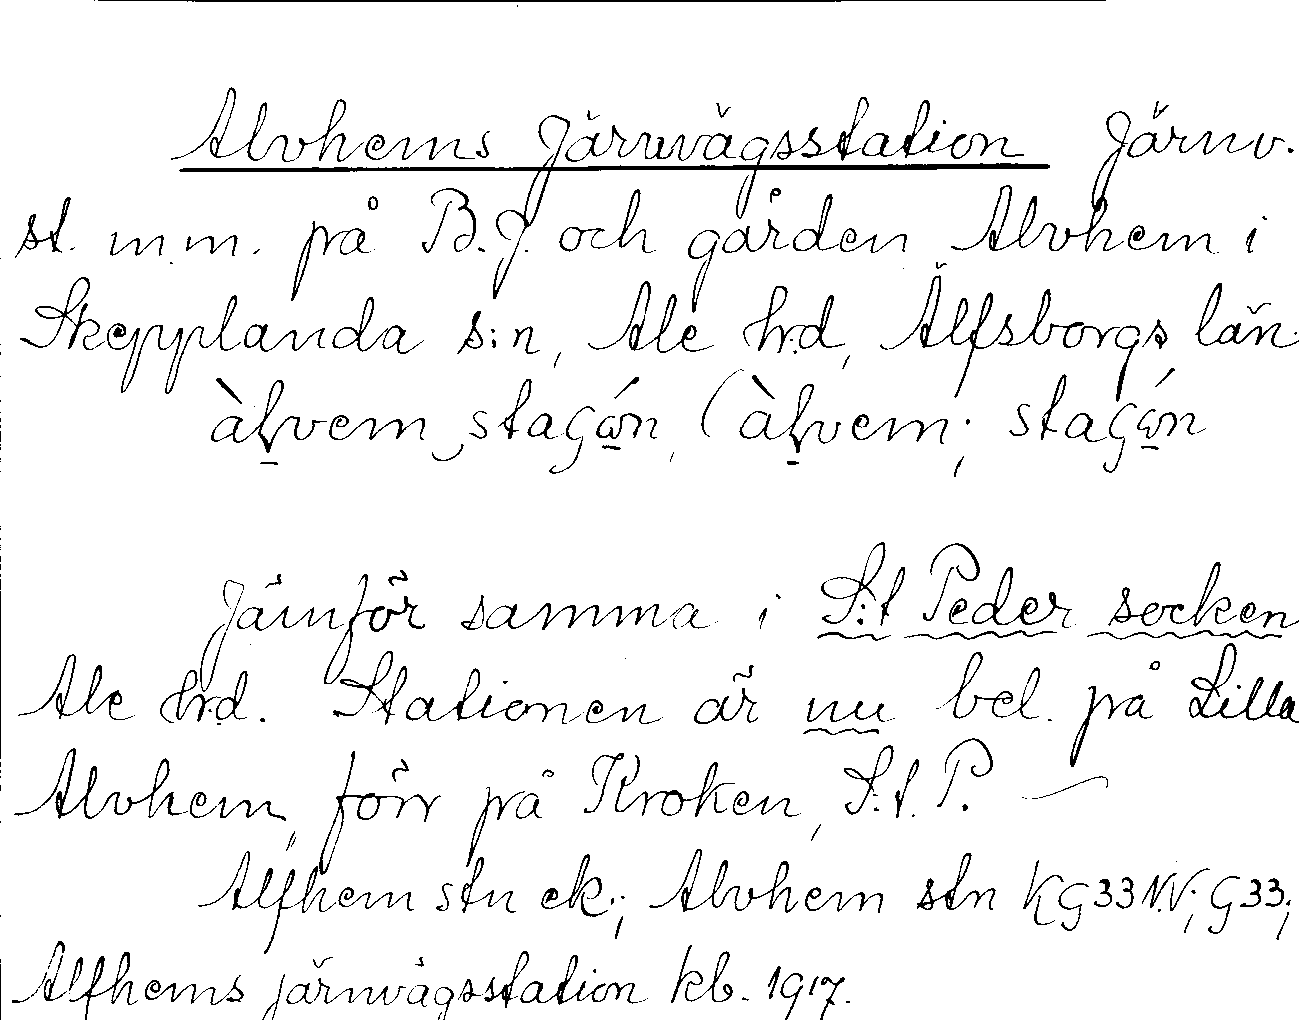 Alvhems Järnvägsstation Järnv.
st. m.m. på B.J. och gården Alvhem i
Skepplanda s:n, Ale hrd, Älfsborgs län.
àlvem staGón, (àlvem; staGón
Jämför samma i S:t Peder socken
Ale hrd. Stationen är nu bel. på Lilla
Alvhem, förr på Kroken, S:t. P. —
Alfhem stn ek.; Alvhem stn KG33 N.V; G33;
Alfhems järnvägsstation kb. 1917.